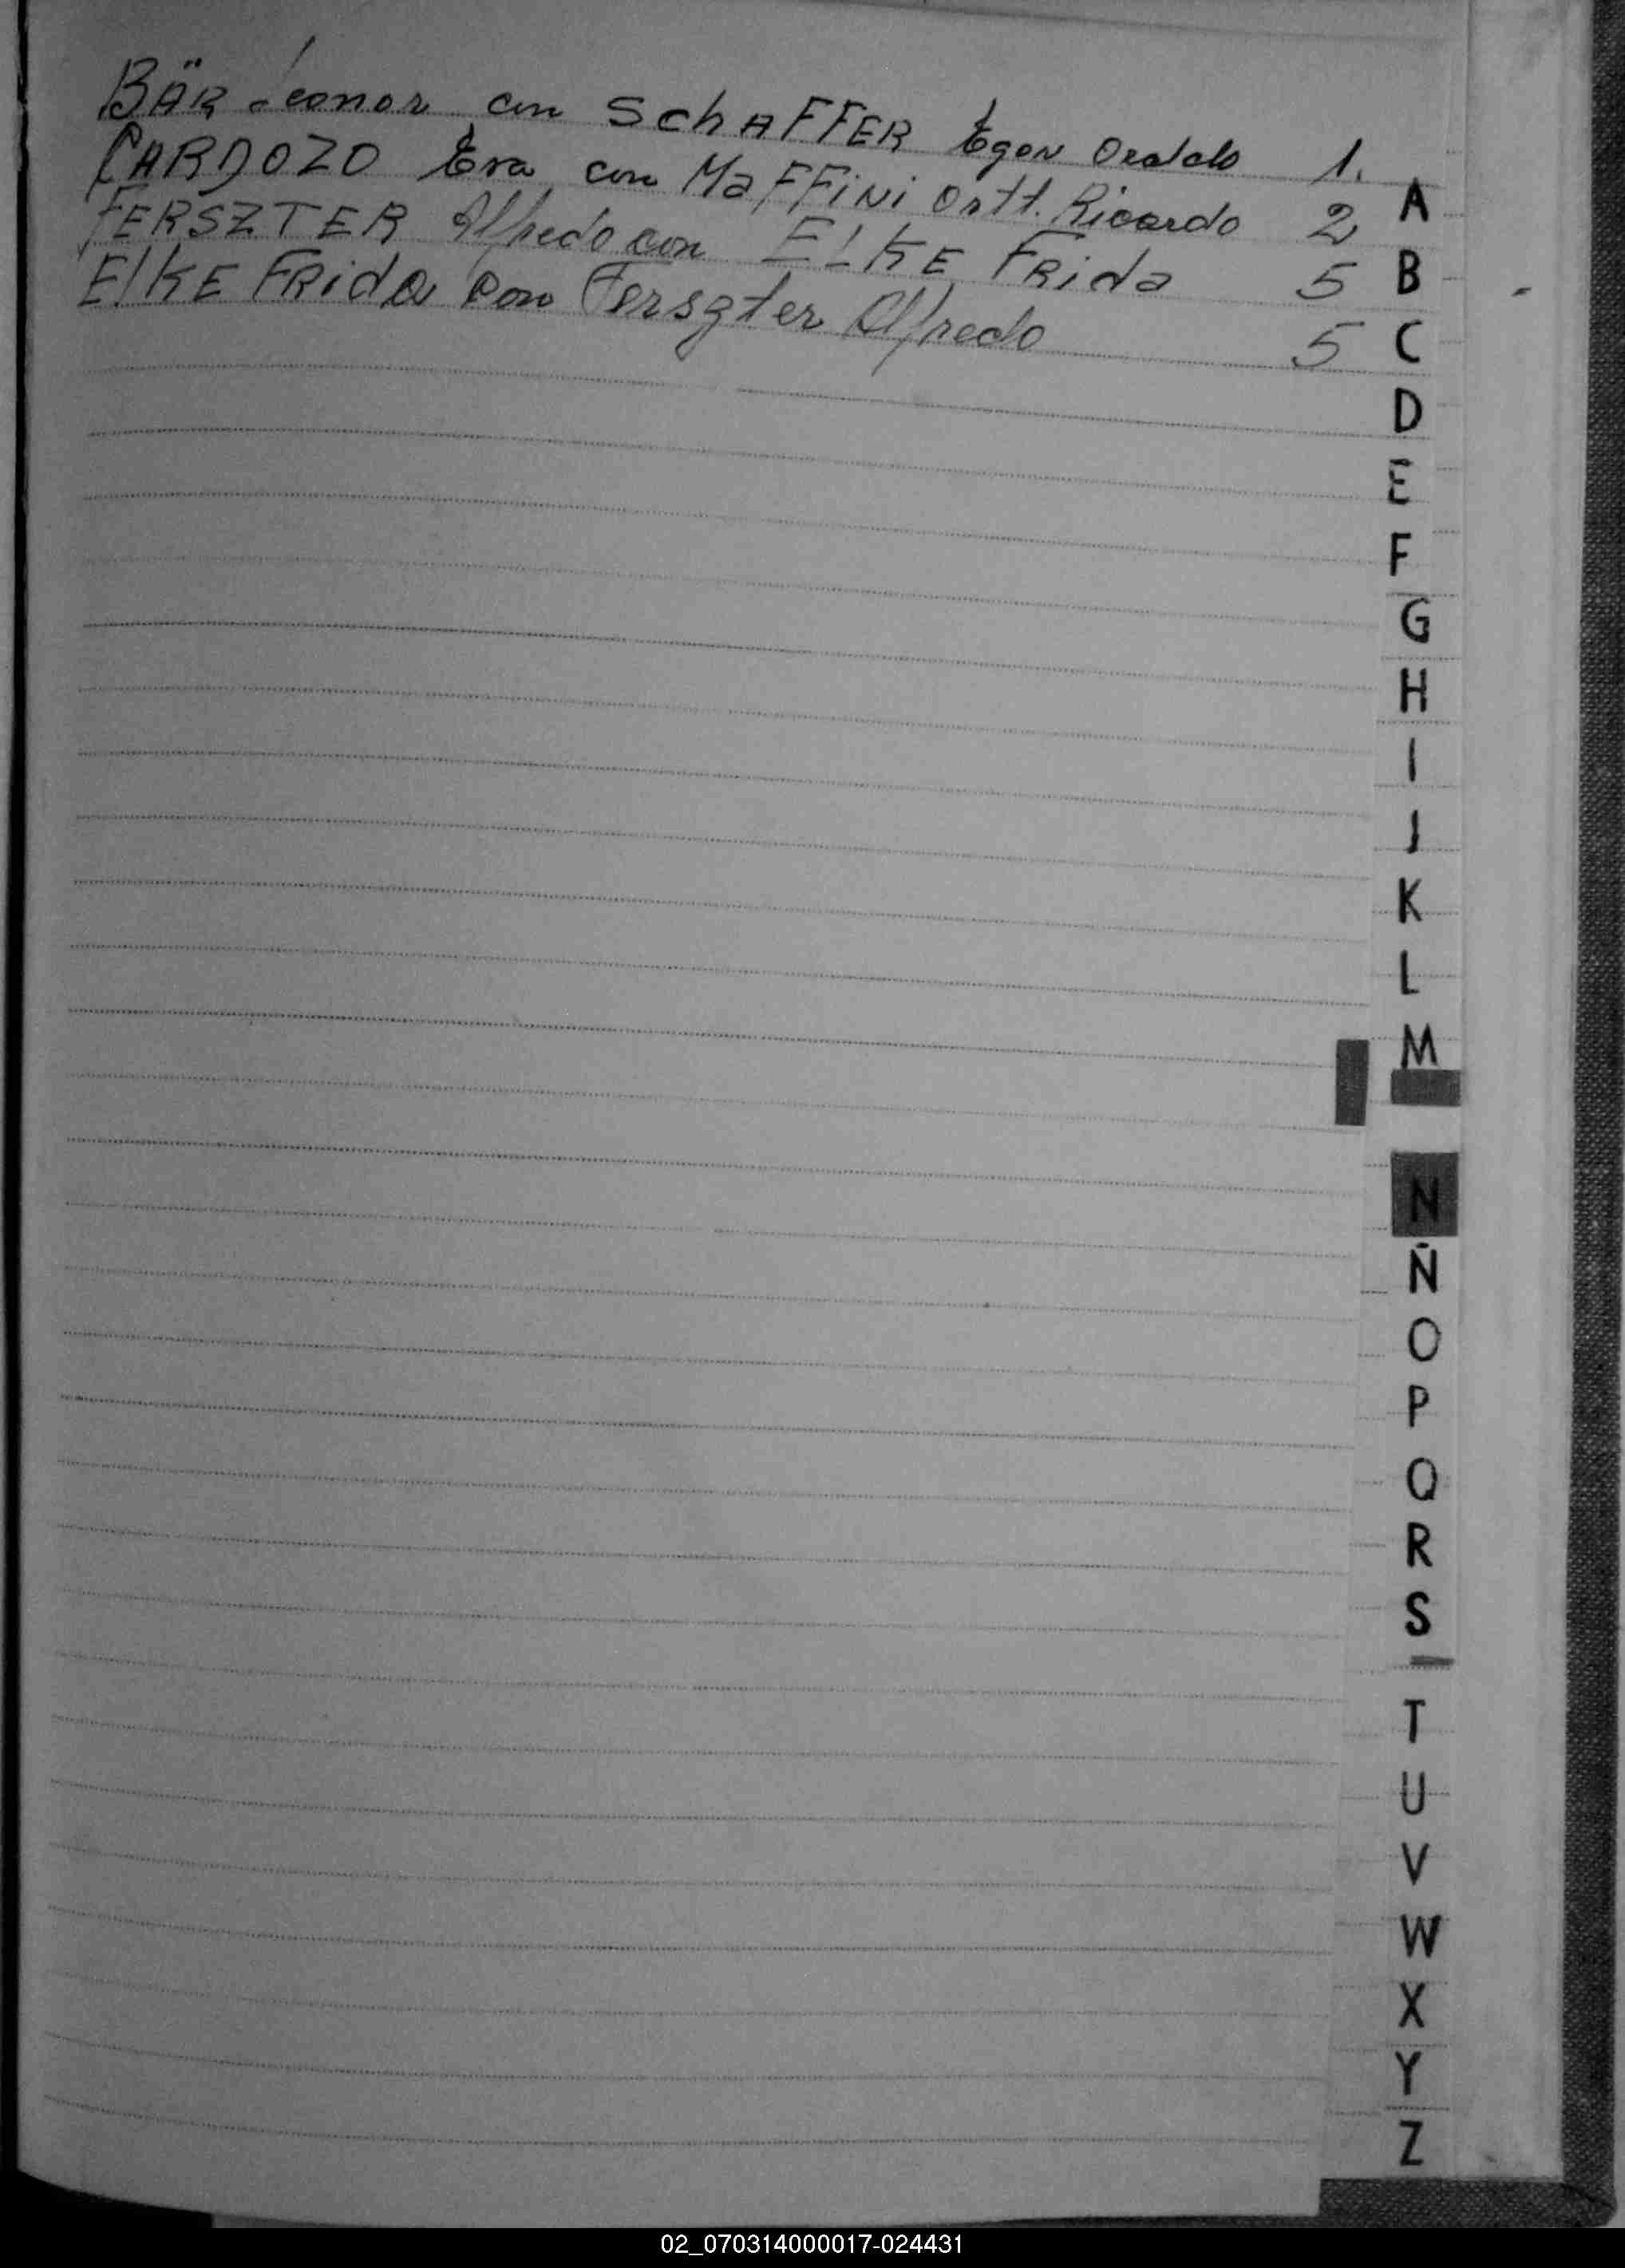 BÄR Leonor con SchAFFER Egon
CARDOZO Eva con MaFFiNi Ricardo 2
FERSZTER Alfredo con ELKE FRida 5
ElKE FRida con Ferszter Alfredo 5
1.
A
B
C
D
E
F
G
H
I
J
K
L
M
N
Ñ
O
P
Q
R
S
T
U
V
W
X
Y
Z
02_070314000017-024431